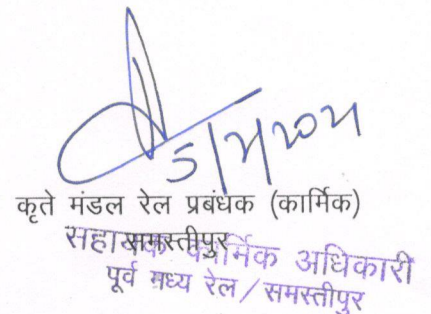 कृते मंडल रेल प्रबंधक (कार्मिक)
समस्तीपुर
सहायक कार्मिक अधिकारी
पूर्व मध्य रेल/समस्तीपुर